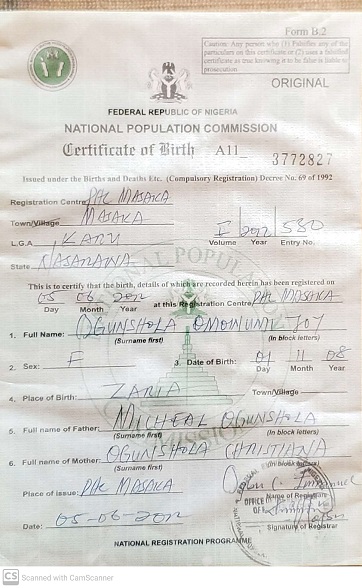 Form B.2
Caution: Any person who (1) Falsifies any of the particulars on this certificate or (2) uses a falsified certificate as true knowing it to be false is liable to prosecution
ORIGINAL
FEDERAL REPUBLIC OF NIGERIA
NATIONAL POPULATION COMMISSION
Certificate of Birth A11 3772827
Issued under the Births and Deaths Etc. (Compulsory Registration) Decree No. 69 of 1992
Registration Centre PHC MASAKA
Town/Village MASAKA
L.G.A. KARU I 2012 580
Volume Year Entry No.
State NASARAWA
This is to certify that the birth, details of which are recorded herein has been registered on
05 06 2012 at this Registration Centre PHC MASAKA
Day Month Year
1. Full Name: OGUNSHOLA OMOWUMI JOY
(Surname first) (In block letters)
2. Sex: F 3. Date of Birth: 01 11 08
Day Month Year
4. Place of Birth: ZARIA Town/Village
5. Full name of Father: MICHEAL OGUNSHOLA
(Surname first) (In block letters)
6. Full name of Mother: OGUNSHOLA CHRISTIANA
(Surname first) (In block letters)
Place of issue: PHC MASAKA
Name of Registrar
Date: 05-06-2012
Signature of Registrar
NATIONAL REGISTRATION PROGRAMME
CS Scanned with CamScanner